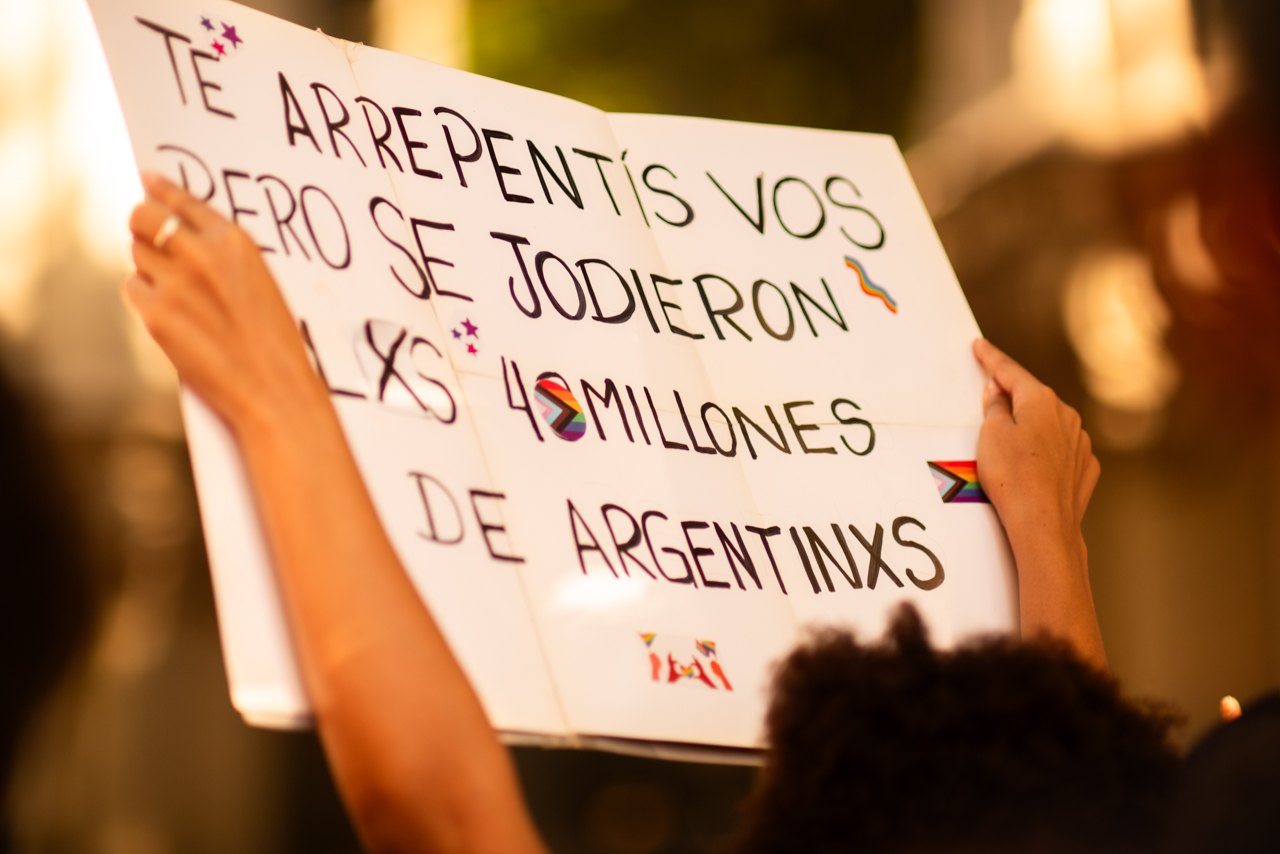 TE ARREPENTÍS VOS
PERO SE JODIERON
LXS 40 MILLONES
DE ARGENTINXS